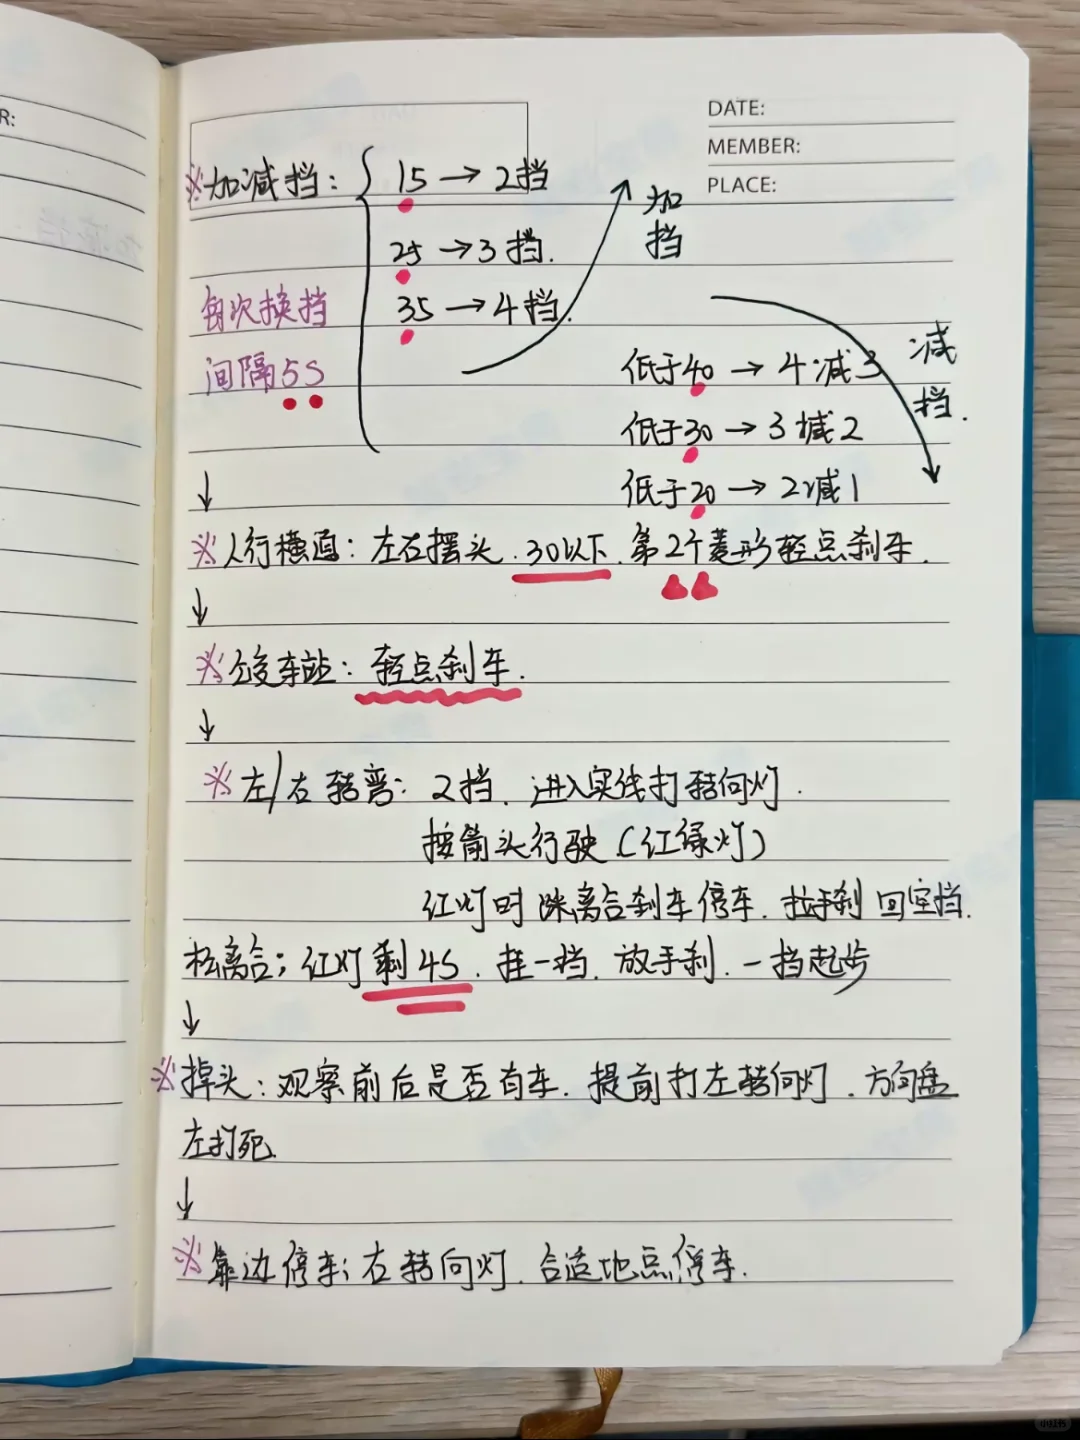 R:
DATE:
MEMBER:
PLACE:
※加减挡: { 15 → 2挡
25 → 3挡.
35 → 4挡.
加
挡
每次换挡
间隔5S
减
挡.
低于40 → 4减3
低于30 → 3减2
低于20 → 2减1
↓
※人行横道: 左右摆头. 30以下. 第2个菱形轻点刹车.
↓
※公交车站: 轻点刹车.
↓
※左/右转弯: 2挡. 进入实线打转向灯.
按箭头行驶(红绿灯)
红灯时 踩离合刹车停车. 拉手刹 回空挡.
松离合; 红灯剩4S. 挂一挡. 放手刹. 一挡起步
↓
※掉头: 观察前后是否有车. 提前打左转向灯. 方向盘
左打死.
↓
※靠边停车; 右转向灯. 合适地点停车.